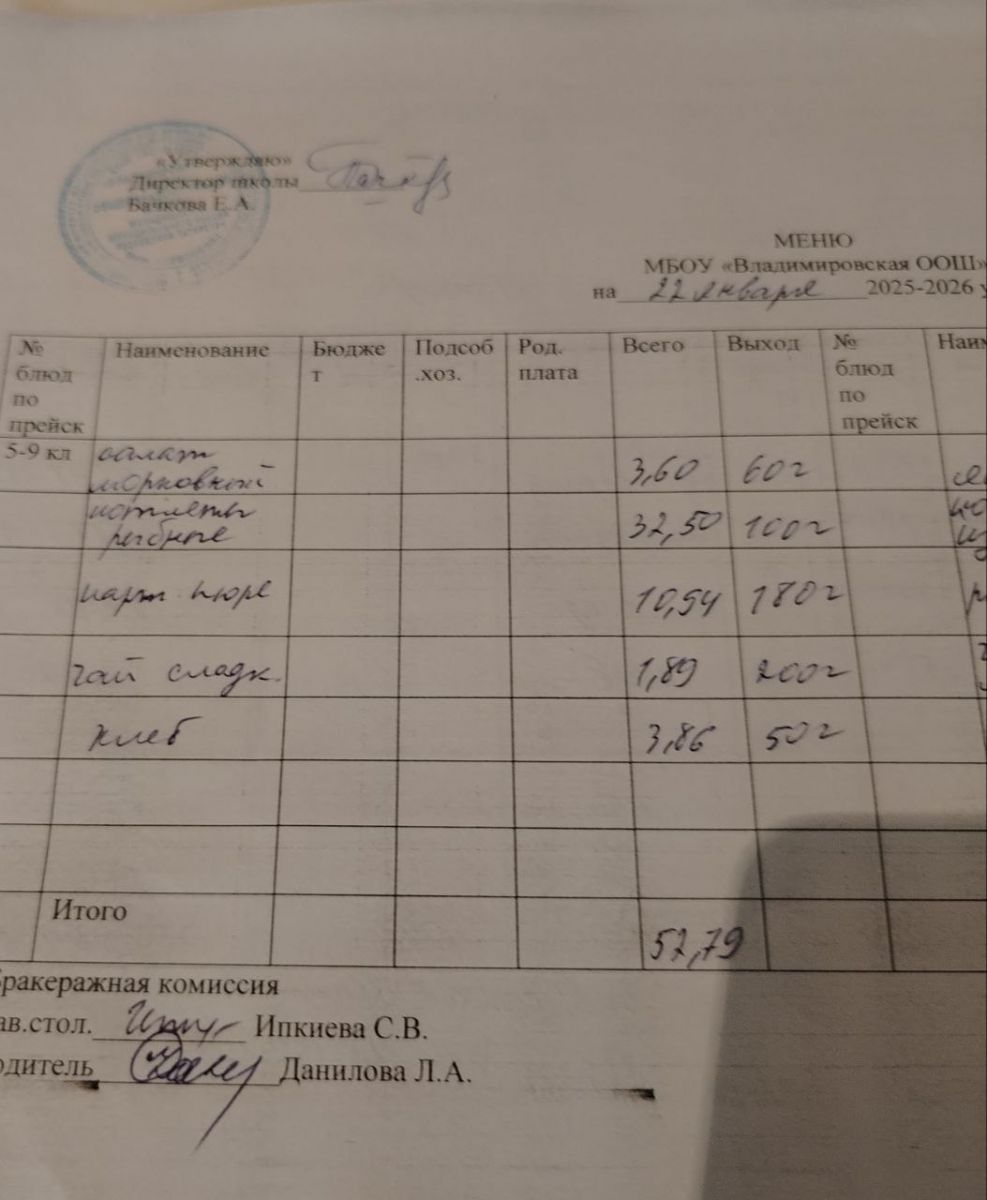 «Утверждаю»
Директор школы
Бачкова Е.А.
МЕНЮ
МБОУ «Владимировская ООШ»
на 22 января 2025-2026 у
№ блюд по прейск Наименование Бюджет Подсоб.хоз. Род. плата Всего Выход № блюд по прейск Наим
5-9 кл салат морковный 3,60 60г
котлеты рыбные 32,50 100г
карт пюре 10,94 180г
чай сладк. 1,89 200г
хлеб 3,86 50г
Итого 52,79
бракеражная комиссия
ав.стол. Ипкиева С.В.
одитель Данилова Л.А.